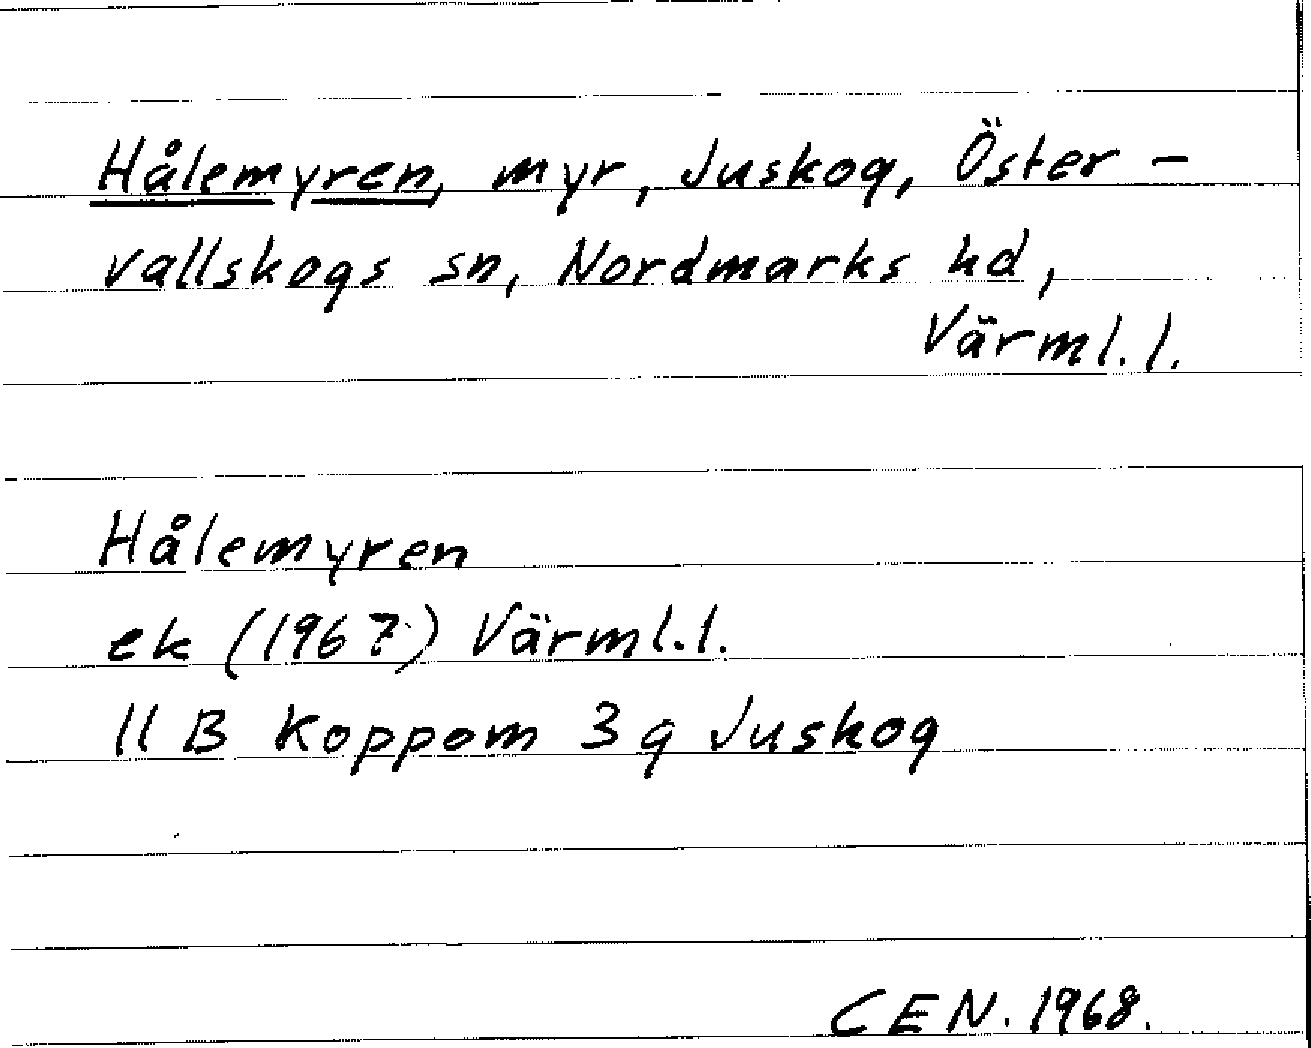 Hålemyren, myr, Juskog, Öster-
vallskogs sn, Nordmarks hd,
Värml. l.
Hålemyren
ek (1967) Värml. l.
11 B Koppom 3 g Juskog
CEN. 1968.